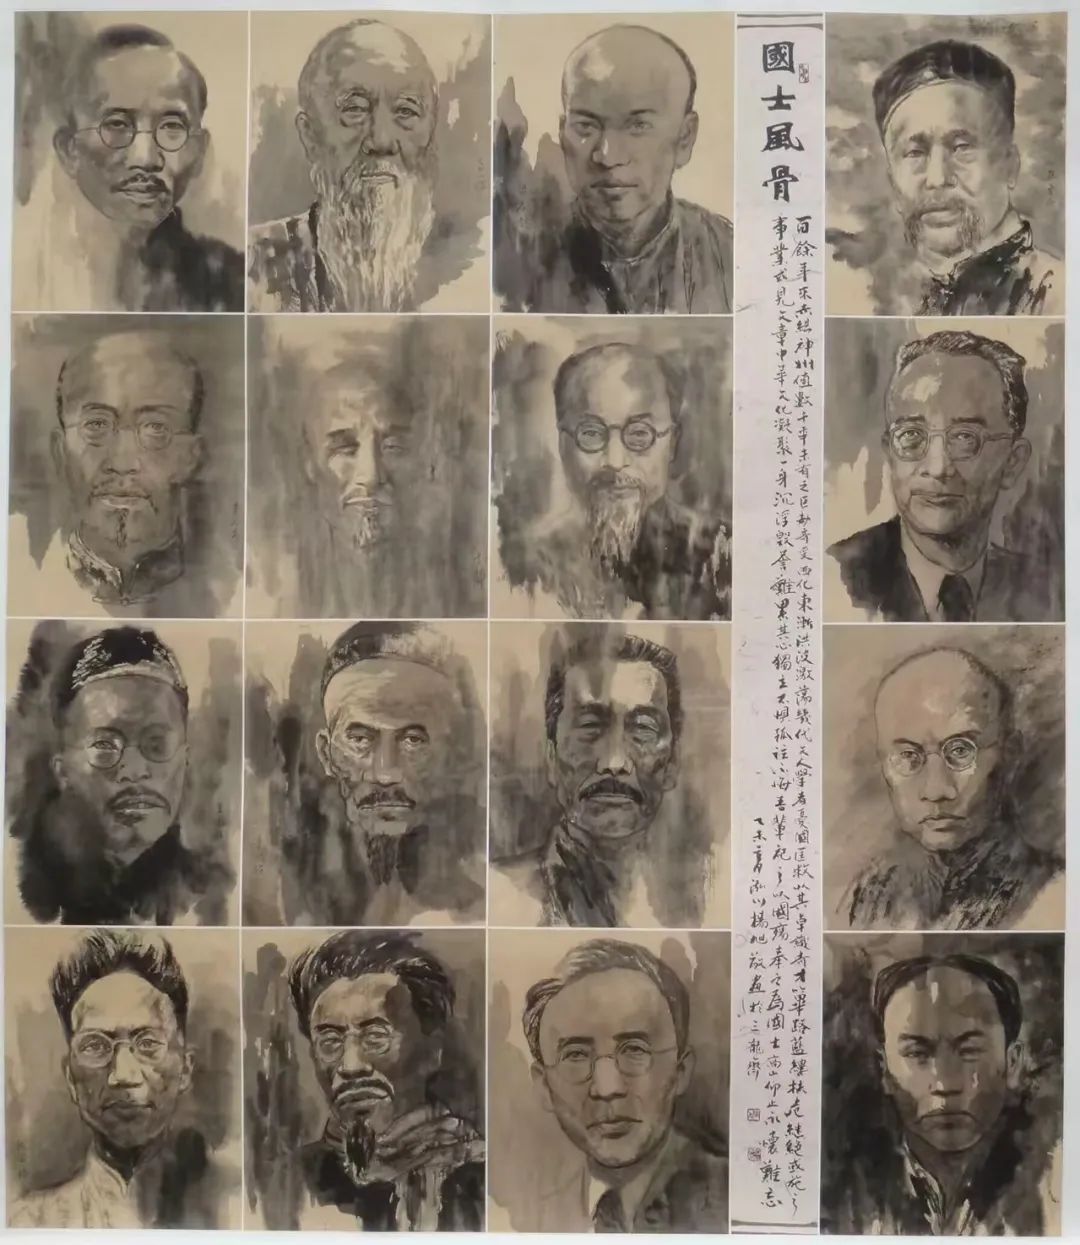 國士風骨
百餘年來赤縣神州值數千年未有之巨劫奇變西化東漸洪波激蕩幾代文人學者憂國匡救以其卓識奇才篳路藍縷扶危繼絕或施之
事業或見文章中華文化凝聚一身沉浮毀譽難累其心獨立不懼孤往不悔吾輩祀之以國殤奉之為國士高山仰止永懷難忘
乙未月泓川楊旭敬畫於三龍齋